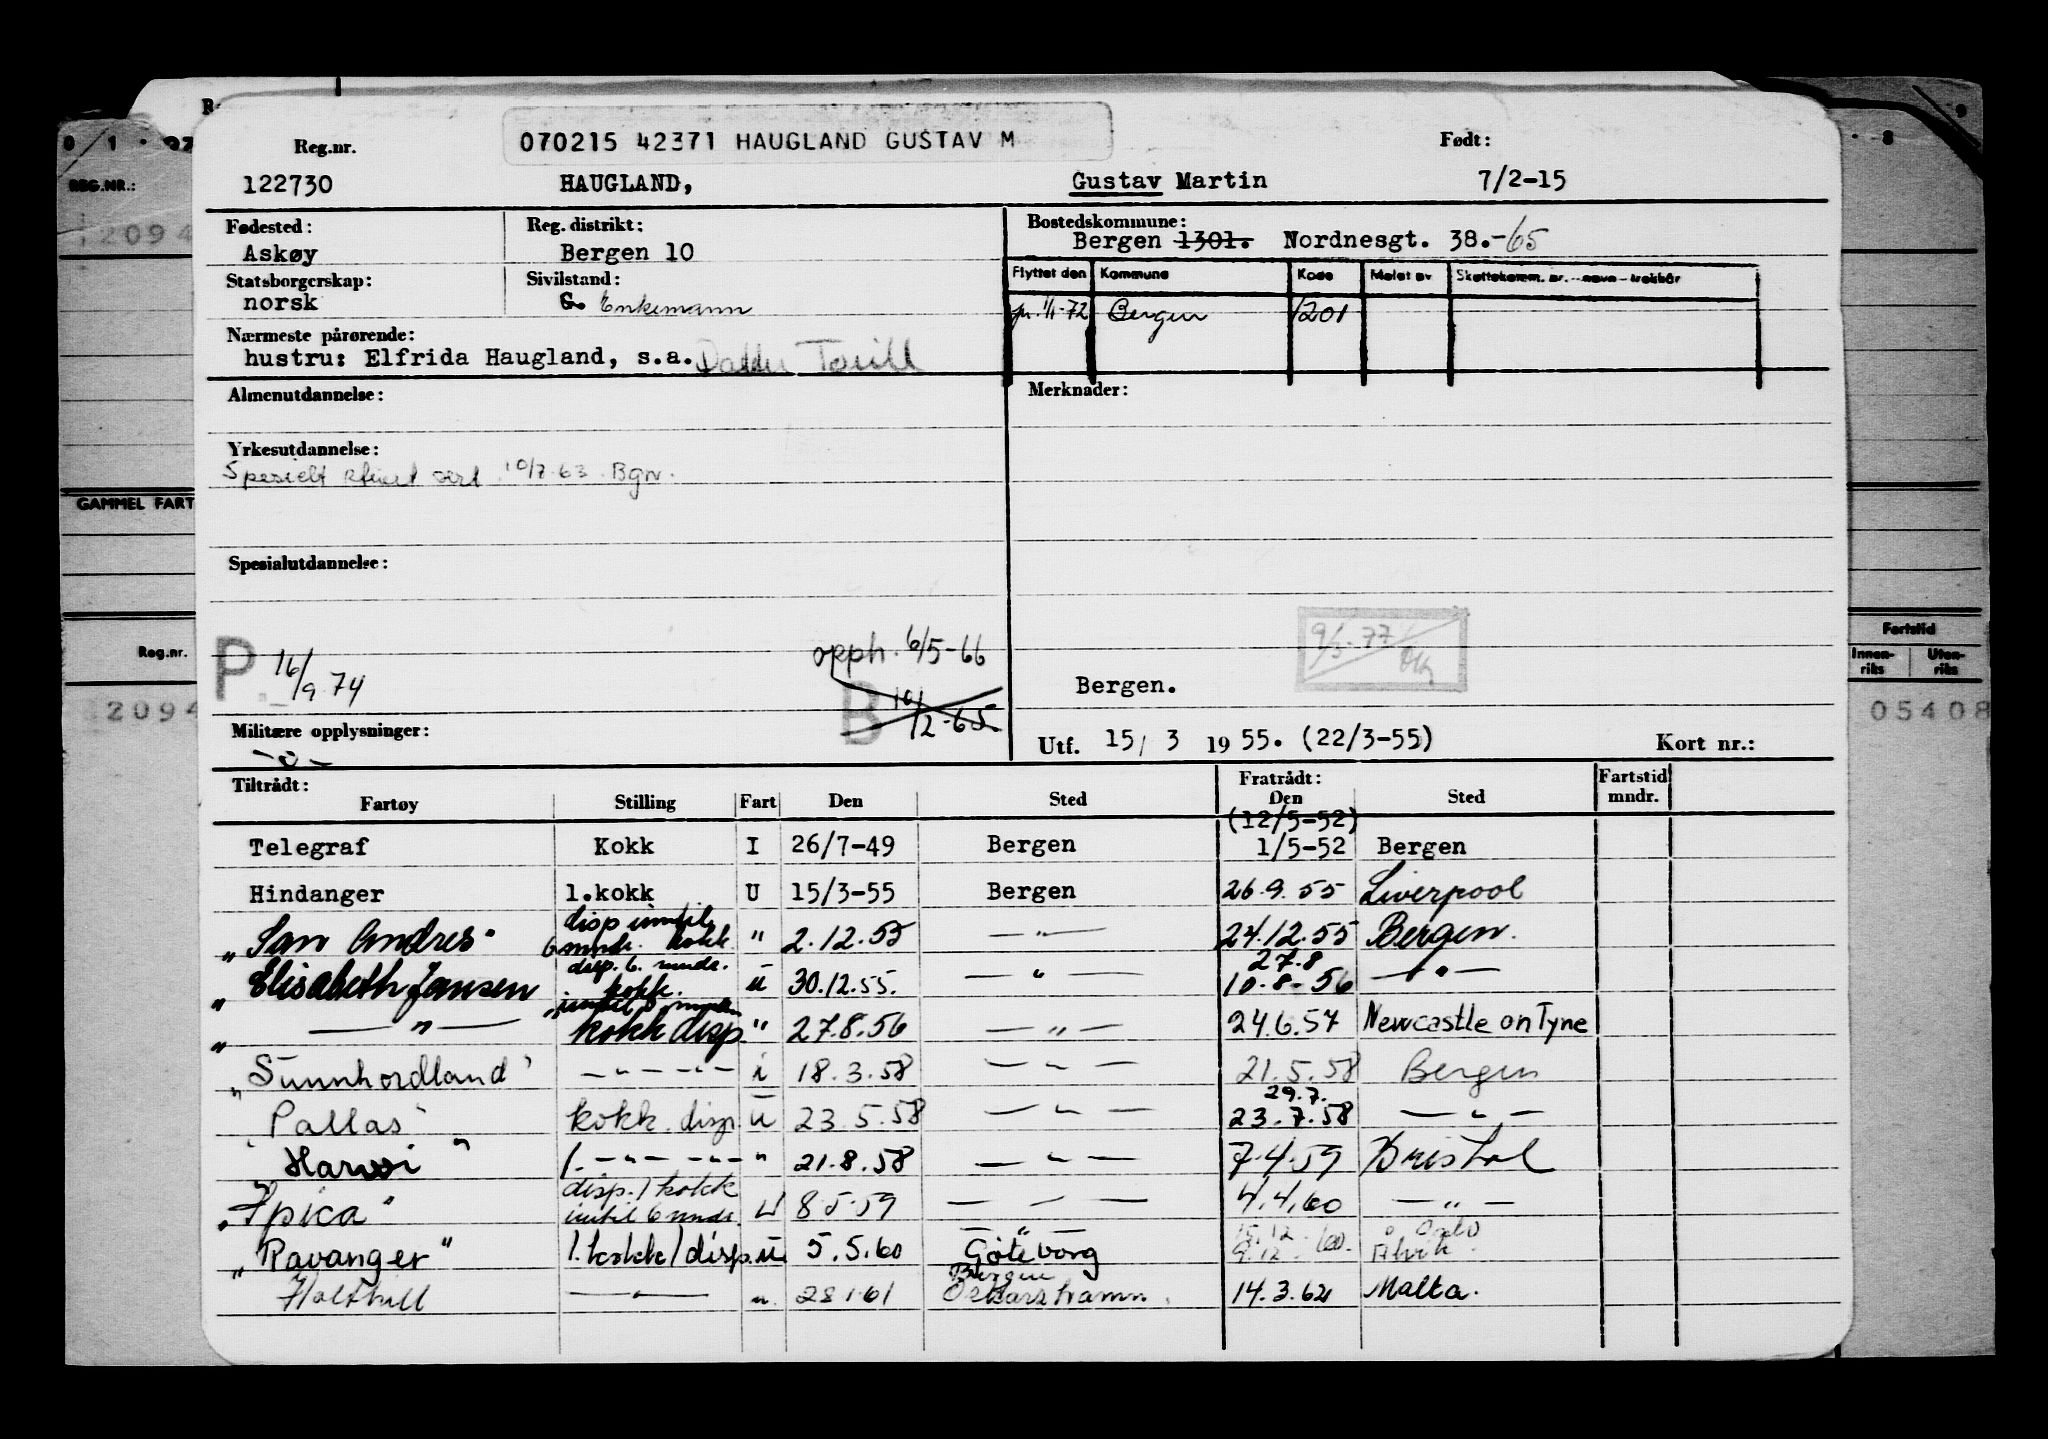 070215 42371 HAUGLAND GUSTAV M
Reg.nr. Født:
122730 HAUGLAND, Gustav Martin 7/2-15
Fødested: Reg. distrikt: Bostedskommune:
Askøy Bergen 10 Bergen 1301. Nordnesgt. 38.-65
Statsborgerskap: Sivilstand: Flyttet den Kommune Kode Meldt av Skattekomm. nr. - navn - trekkår
norsk G. Enkemann pr. 1/1-72 Bergen 1201
Nærmeste pårørende:
hustru: Elfrida Haugland, s.a. Datter Torill
Almenutdannelse: Merknader:
Yrkesutdannelse:
Spesielt sert. 10/7-63. Bgn.
Spesialutdannelse:
P. 16/9 74
opph. 6/5-66
B 10/2-65
9/3-77
Bergen.
Militære opplysninger:
-o-
Utf. 15/ 3 1955. (22/3-55) Kort nr.:
Tiltrådt: Fratrådt: Fartstid
Fartøy Stilling Fart Den Sted Den Sted mndr.
(12/5-52)
Telegraf Kokk I 26/7-49 Bergen 1/5-52 Bergen
Hindanger 1.kokk U 15/3-55 Bergen 26.9.55 Liverpool
disp inntil
"San Andres" 6 mndr. kokk " 2.12.55 —"— 24.12.55 Bergen.
disp. 6. mndr. 27.8
"Elisabeth Jansen kokk. u 30.12.55. —"— 10.8-56 —"—
inntil 6 mndr
" —"— kokk disp. " 27.8.56 —"— 24.6.57 Newcastle on Tyne
"Sunnhordland" —"— —"— i 18.3.58 —"— 21.5.58 Bergen
29.7.
"Pallas" kokk. disp. u 23.5.58 —"— 23.7.58 —"—
"Harwi" 1. —"— —"— " 21.8.58 —"— 7.4.59 Bristol
disp. 1 kokk
"Spica" inntil 6 mndr. u 8.5.59 — — — 4.4.60 —"—
—"— 15.12.60 Oslo
"Ravanger" 1. kokk/disp. u 5.5.60 Göteborg 9.12.60. Ålvik.
Bergen
Holthill —"— u. 28 1.61 Oskarshamn. 14.3.62 Malta.
REG.NR.:
12094
GAMMEL FART
Reg.nr.
2094
9
8
Fartstid
Innenriks Utenriks
05408